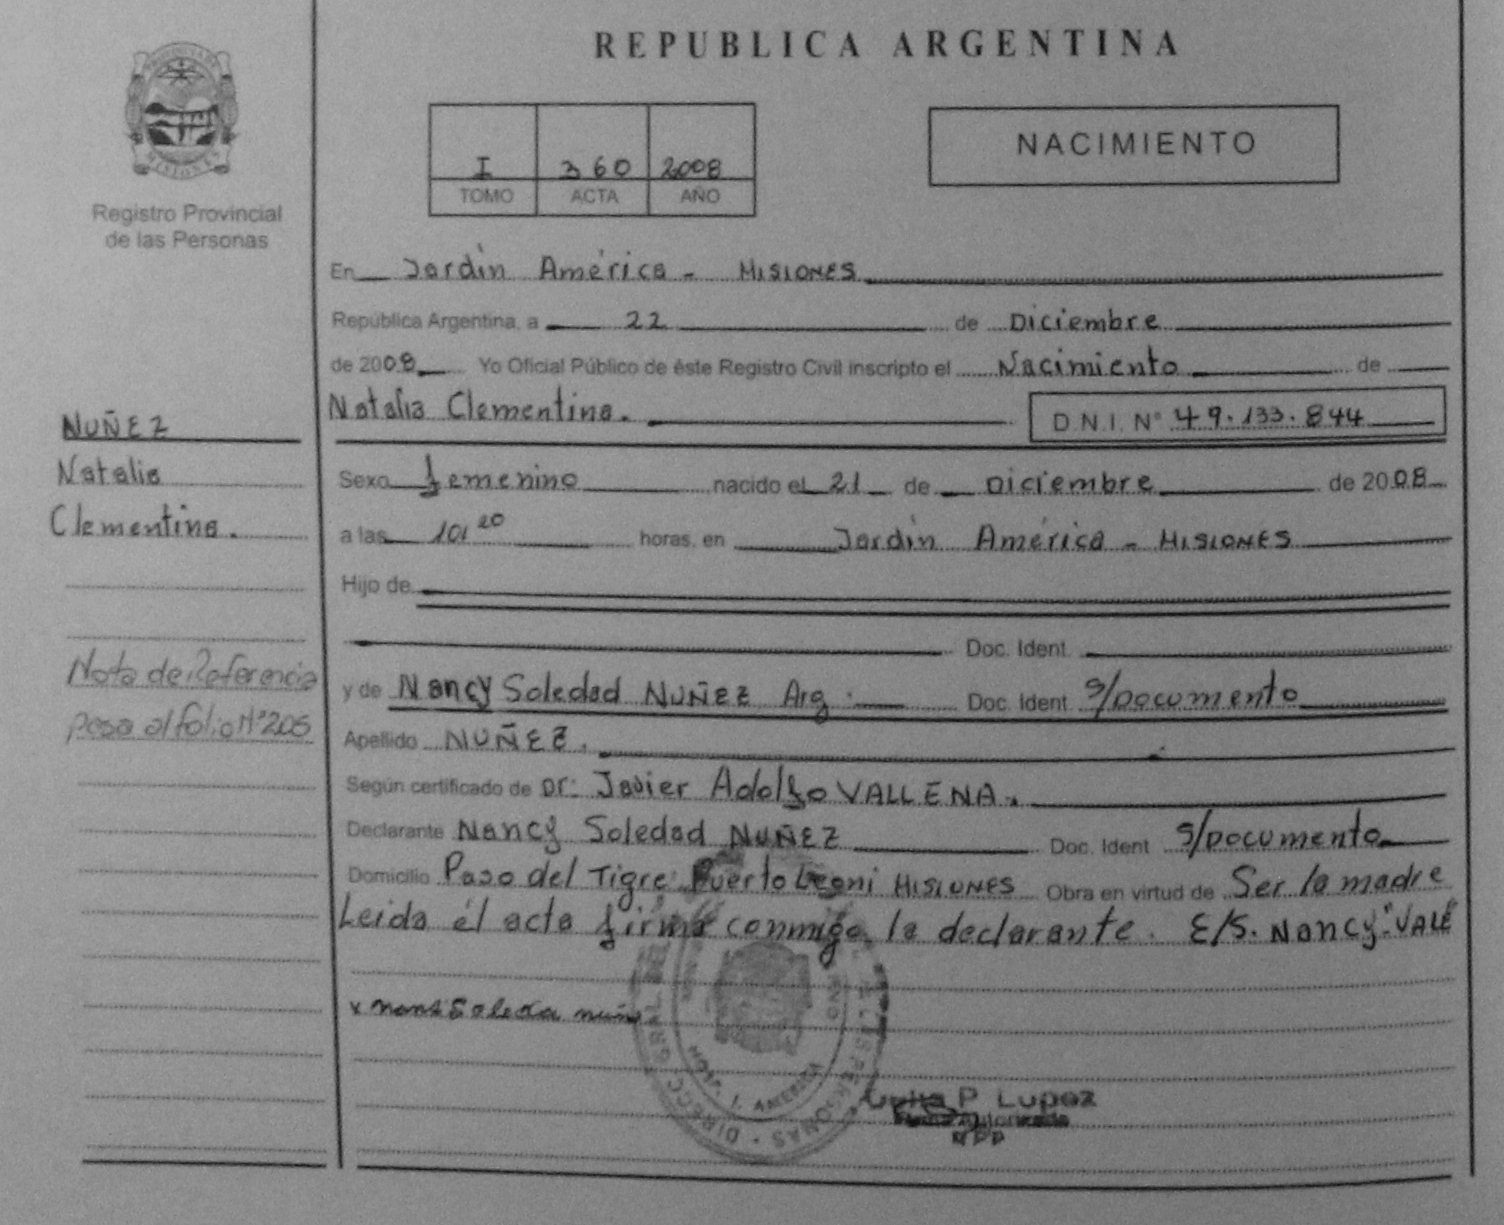 REPUBLICA ARGENTINA
PROVINCIA DE
MISIONES
Registro Provincial
de las Personas
I 360 2008
TOMO ACTA AÑO
NACIMIENTO
En Jardín América - MISIONES
República Argentina, a 22 de Diciembre
de 2008 Yo Oficial Público de éste Registro Civil inscripto el Nacimiento de
Natalia Clementina. D.N.I. Nº 49.133.844
NUÑEZ
Natalia
Clementina.
Sexo femenino nacido el 21 de Diciembre de 2008
a las 10,20 horas, en Jardín América - MISIONES
Hijo de
Doc. Ident.
Nota de Referencia
pasa al folio Nº 205
y de Nancy Soledad NUÑEZ Arg. Doc. Ident. S/Documento
Apellido NUÑEZ.
Según certificado de Dr: Javier Adolfo VALLENA.
Declarante Nancy Soledad NUÑEZ Doc. Ident S/Documento
Domicilio Paso del Tigre Puerto Leoni MISIONES Obra en virtud de Ser la madre
Leida el acta firma conmigo la declarante. E/S. Nancy "VALE"
x Soleda
DIRECC. GRAL. DEL DE LAS PERSONAS
AMERICA
P. Lopez
Firma Autorizada
RPP